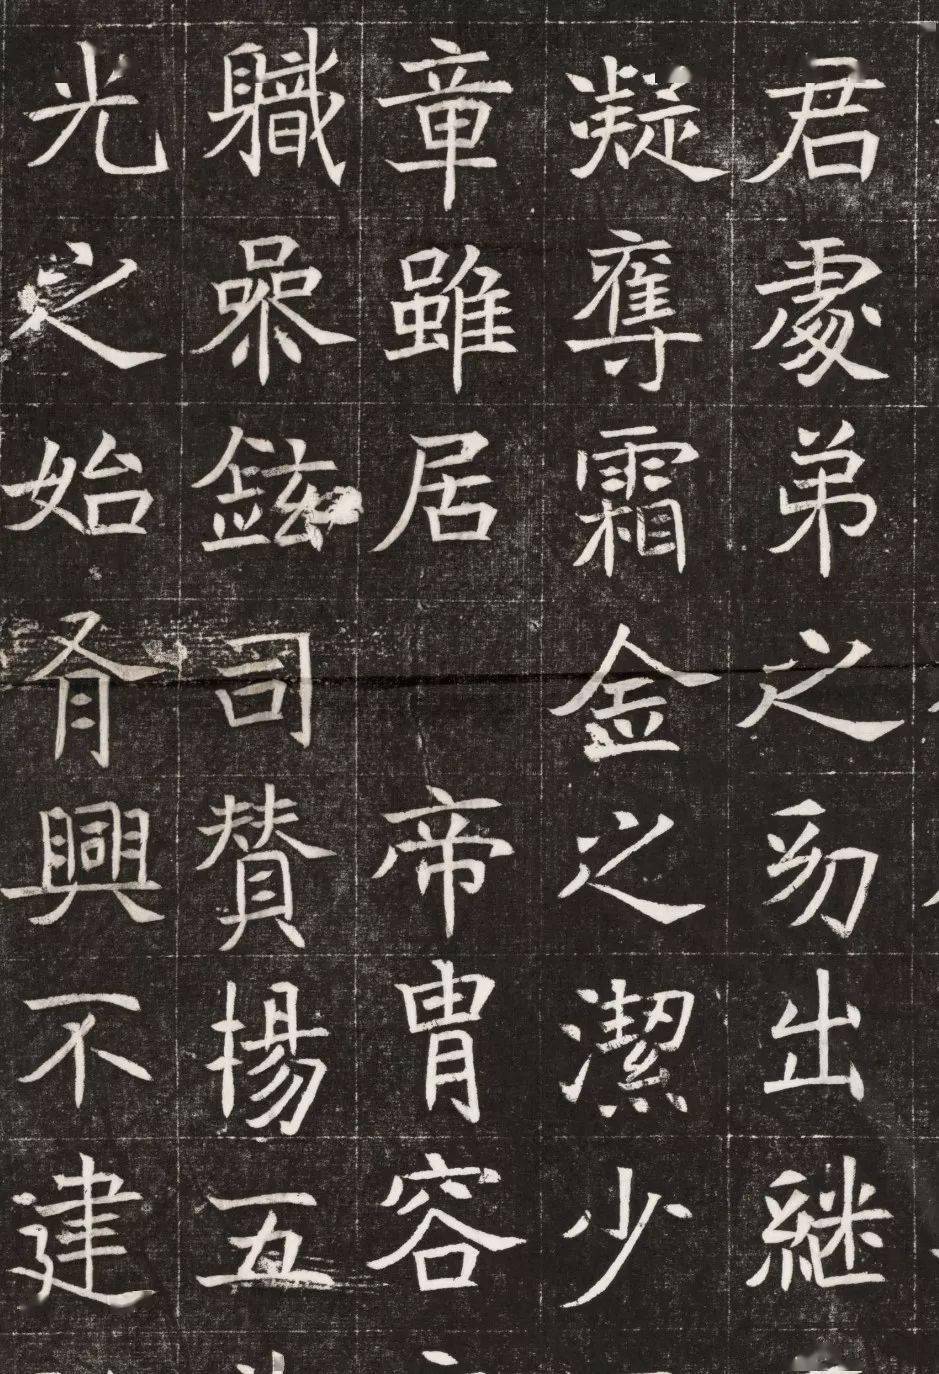 君處弟之幼出継
凝奪霜金之潔少
章雖居 帝胄容
職參鉉司賛揚五
光之始興不建